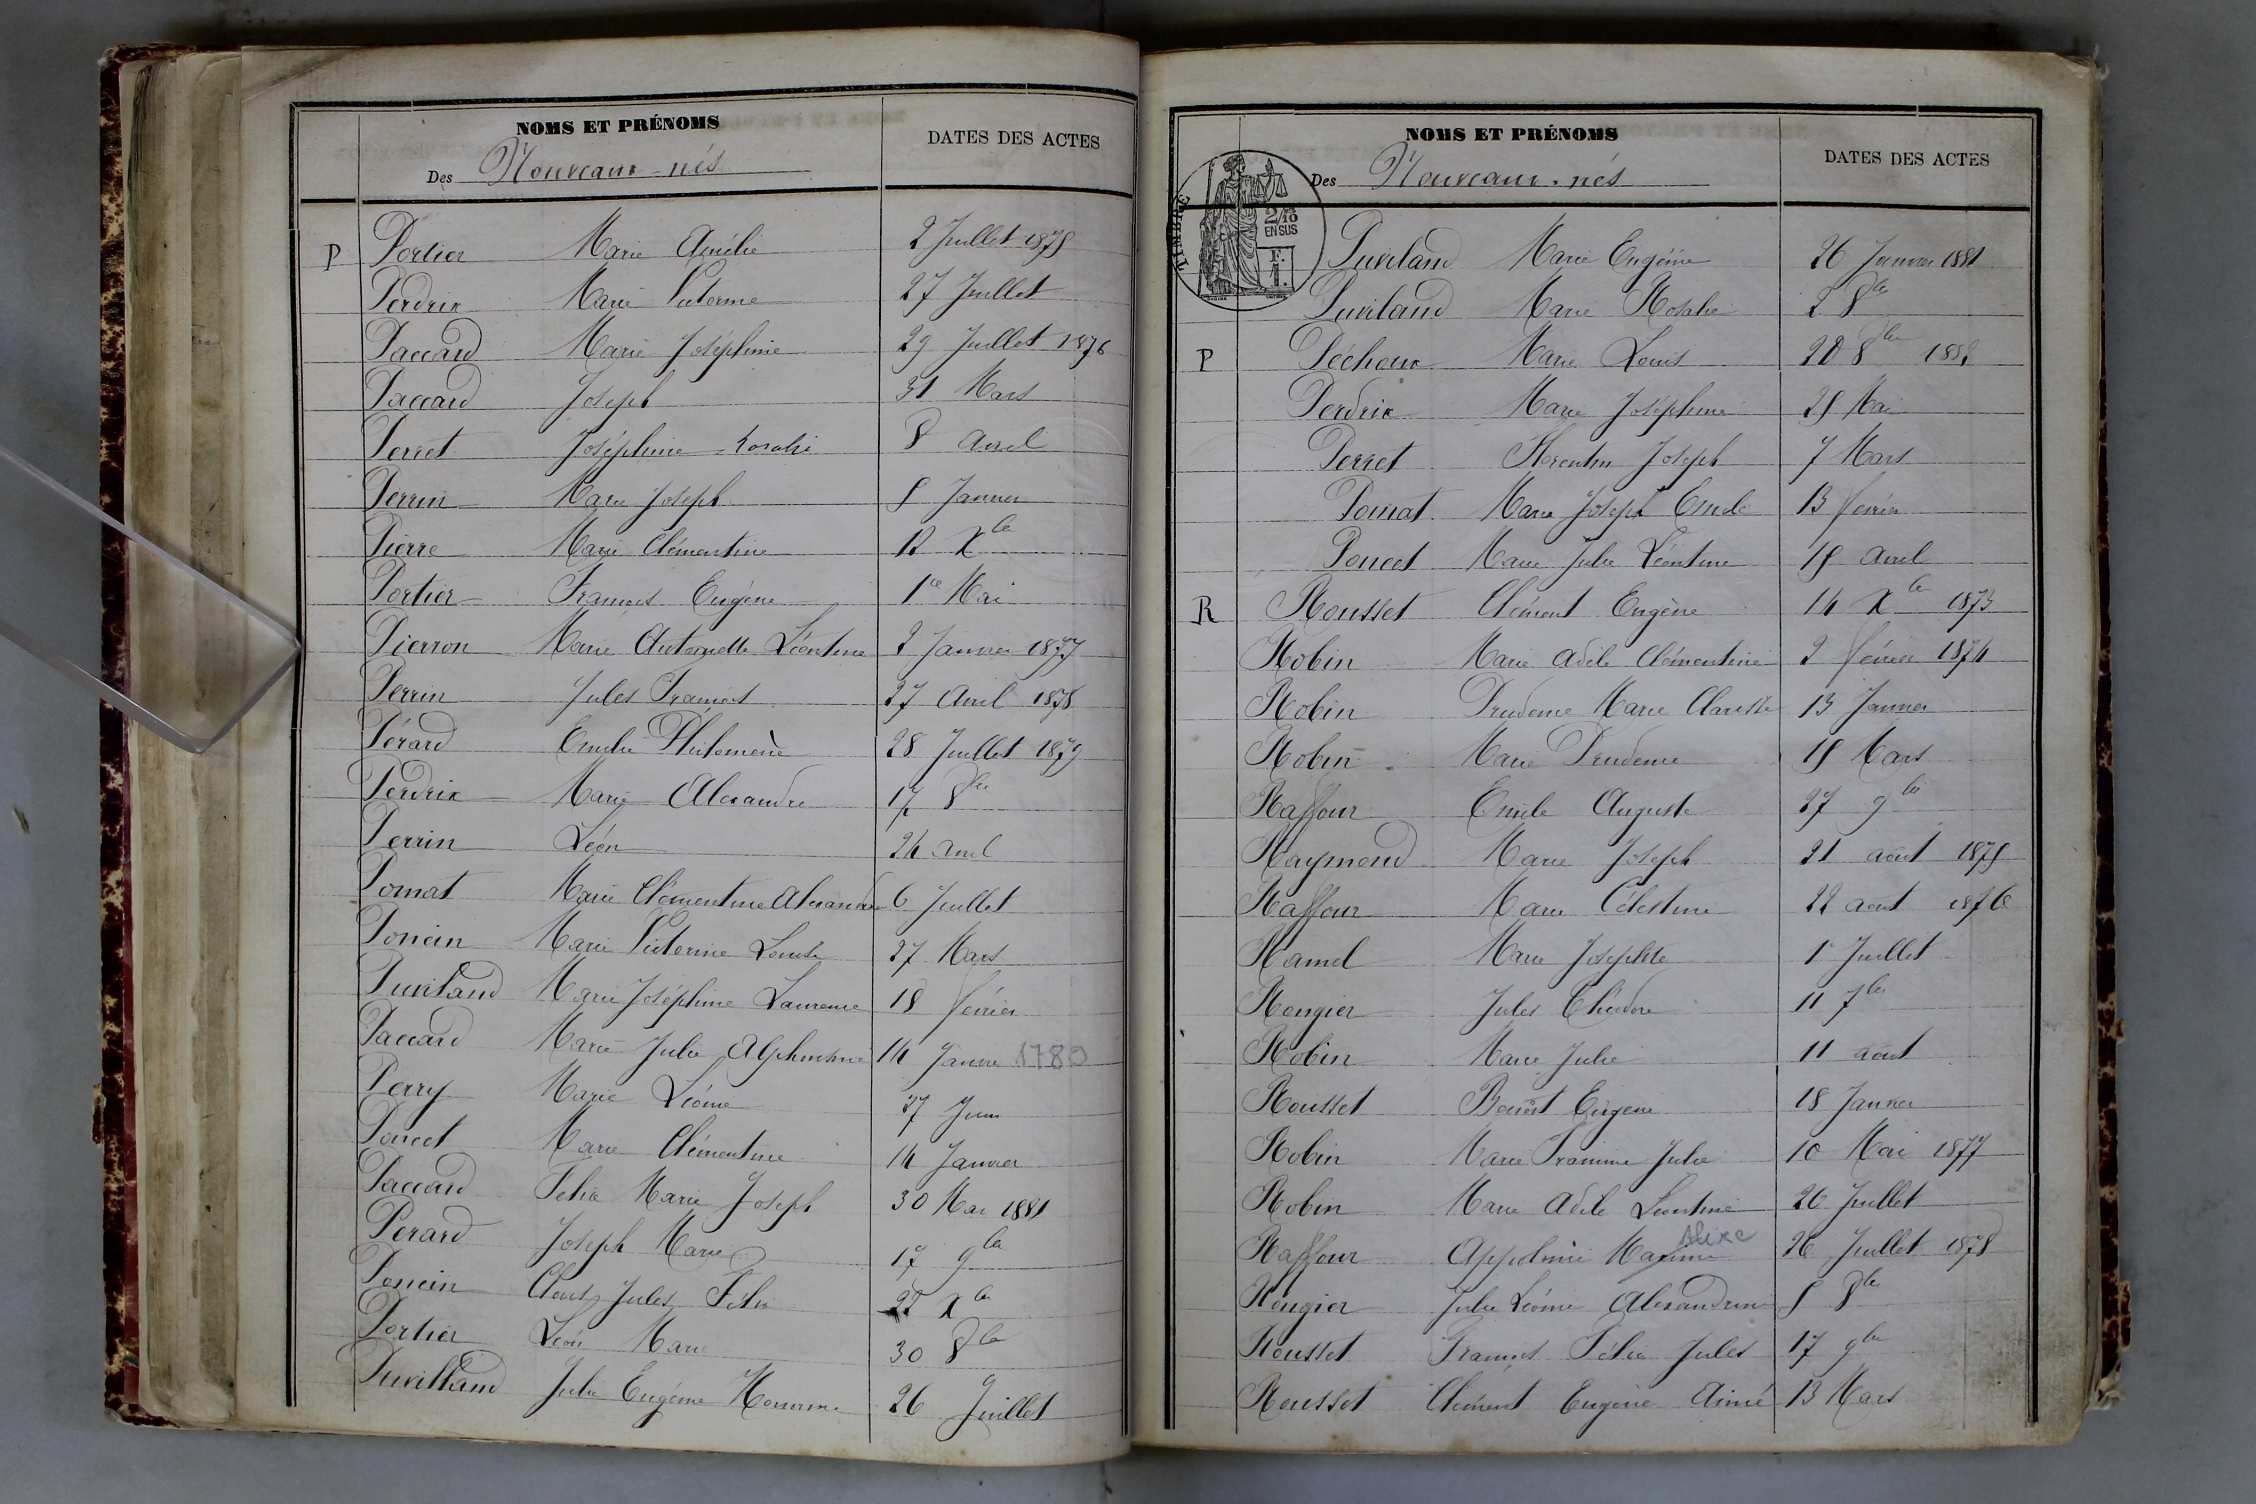 NOMS ET PRÉNOMS
DATES DES ACTES
Des Nouveaux-nés
P Portier Marie Amélie 2 Juillet 1875
Perdrix Marie Victorine 27 Juillet
Paccard Marie Joséphine 29 Juillet 1876
Paccard Joseph 31 Mars
Perret Joséphine Rosalie 8 avril
Perrin Marie Joseph 8 Janvier
Pierre Marie Clémentine 12 Xbre
Portier François Eugène 1er Mai
Pierron Marie Antoinette Léontine 2 Janvier 1877
Perrin Jules François 27 Avril 1878
Pérard Emilie Philomène 28 Juillet 1879
Perdrix Marie Alexandre 17 8bre
Perrin Léon 24 avril
Pomat Marie Clémentine Alexandrine 6 Juillet
Poncin Marie Victorine Louise 27 Mars
Puviland Marie Joséphine Laurence 18 février
Paccard Marie Julie Alphonsine 14 Janvier 1780
Perry Marie Léonie 27 Juin
Poncet Marie Clémentine 14 Janvier
Paccard Félix Marie Joseph 30 Mai 1881
Perard Joseph Marie 17 9bre
Poncin Jules Félix 22 Xbre
Portier Léon Marie 30 8bre
Puvilland Julie Eugénie 26 Juillet
NOMS ET PRÉNOMS
DATES DES ACTES
Des Nouveaux-nés
TIMBRE
2/10
EN SUS
F.
1.
Puviland Marie Eugénie 26 Janvier 1881
Puviland Marie Rosalie 2 8bre
P Péchoux Marie Louis 28 8bre 1882
Perdrix Marie Joséphine 28 Mai
Perret Florentin Joseph 7 Mars
Pomat Marie Joseph Emile 13 février
Poncet Marie Julie Léontine 18 avril
R Rousset Clément Eugène 14 Xbre 1873
Robin Marie Adèle Clémentine 2 février 1874
Robin Prudence Marie Clarisse 13 Janvier
Robin Marie Prudence 18 Mars
Raffour Emile Auguste 27 9bre
Raymond Marie Joseph 21 août 1875
Raffour Marie Célestine 22 aout 1876
Ramel Marie Josephte 1er Juillet
Rougier Jules Théodore 11 7bre
Robin Marie Julie 11 août
Rousset Benoît Eugène 18 Janvier
Robin Marie Francine Julie 10 Mai 1877
Robin Marie Adèle Léontine 26 Juillet
Alixe
Raffour Appolonie Maxime 26 Juillet 1878
Rougier Julie Léonie Alexandrine 8 8bre
Rousset François Félix Jules 17 9bre
Rousset Clément Eugène Aimé 13 Mars